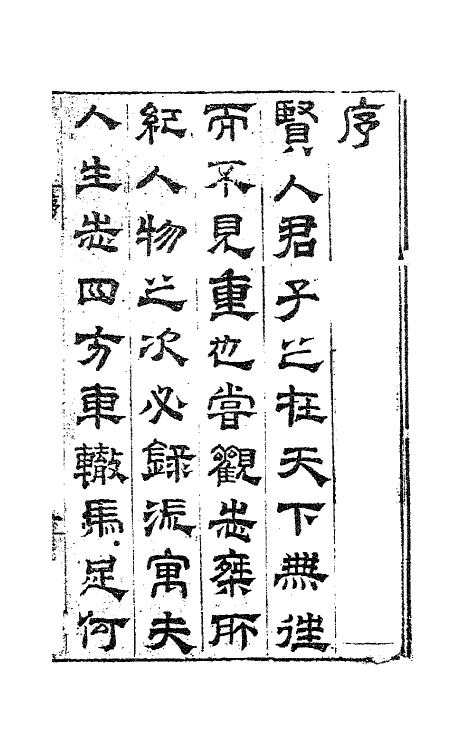 序
賢人君子之在天下無徃
而不見重也嘗觀志乗所
紀人物之次必録流寓夫
人生志四方車轍馬足何